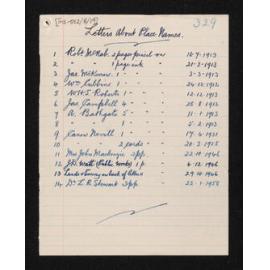 329
Letters About Place Names.
1 Robt McNab. 2 pages 16.7.1913
2 " " 1 page ink 21.2.1913
3 Jas McKinnon 1 " 3.3.1913
4 Wm Cubbins 1 " 12.2.1913
5 W.H.S. Roberts 1 " 12.2.1913
6 Jas Campbell 4 " 25.8.1913
7 A. Bathgate 1 " 11.2.1913
8 " " 1 " 5.2.1913
9 Canon Nevill 1 " 17.4.1921
10 " " 2 cards 20.2.1925
11 Mrs John Mackenzie 3 pp. 22.10.1946
12 J.D. Watt (Public Works) 1 p. 6.12.1946
13 Lands & Survey on back of letters 29.10.1946
14 Dr L.R. Stewart 3 pp. 22.1.1958